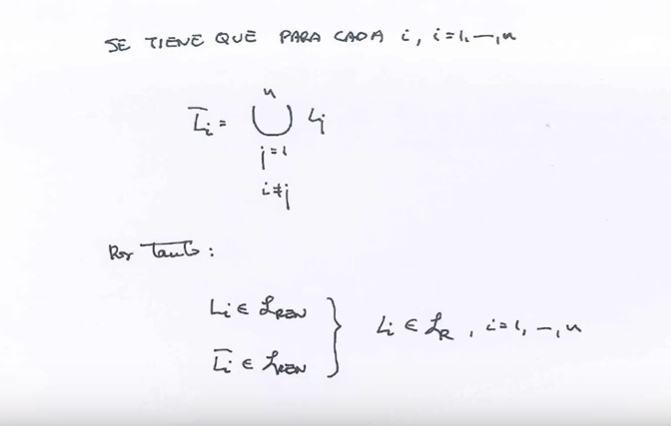 SE TIENE QUE PARA CADA i, i=1,—,n
n
L̅i = ⋃ Lj
j=1
i≠j
Por Tanto:
Li ∈ ℒREN } Li ∈ ℒR, i=1,—,n
L̅i ∈ ℒREN